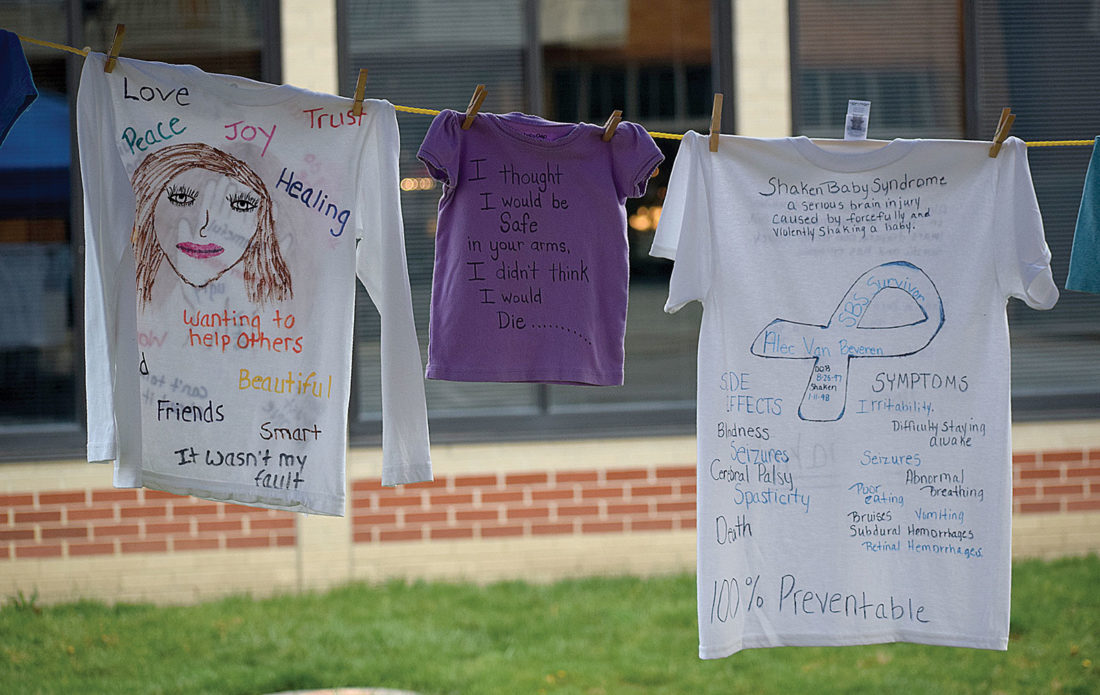 Love
Peace
Joy
Trust
Healing
Wanting to
help Others
Beautiful
Friends
Smart
It wasn't my
fault
I thought
I would be
Safe
in your arms,
I didn't think
I would
Die..........
Shaken Baby Syndrome
a serious brain injury
caused by forcefully and
violently shaking a baby.
SBS Survivor
Alec Van Beveren
DOB
8-26-97
Shaken
1-11-98
SIDE
EFFECTS
Blindness
Seizures
Cerebral Palsy
Spasticity
Death
SYMPTOMS
Irritability.
Difficulty Staying
awake
Seizures
Abnormal
Breathing
Poor
eating
Bruises Vomiting
Subdural Hemorrhages
Retinal Hemorrhages
100% Preventable